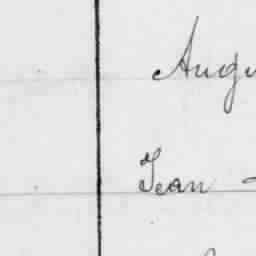 Augu
Jean -